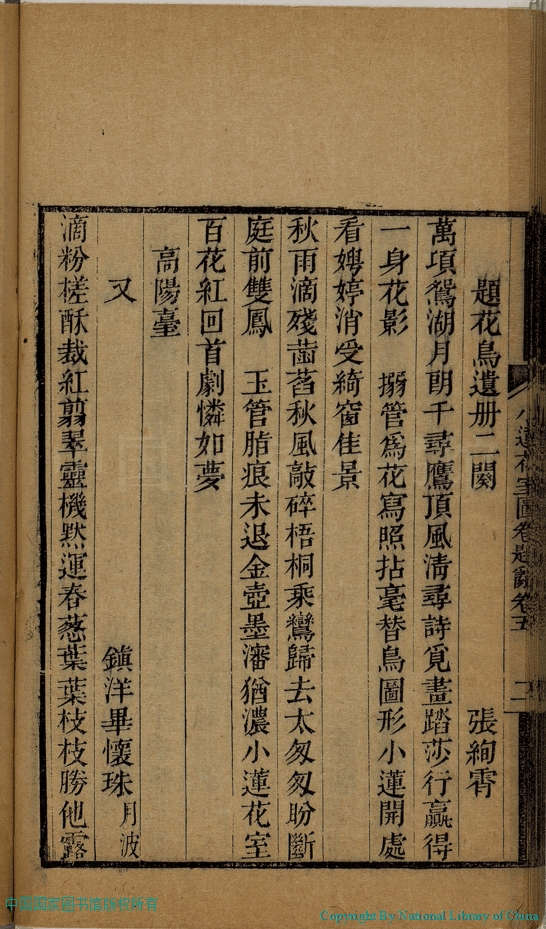 小蓮花室圖卷題辭卷五 二
題花鳥遺册二闋 張絢霄
萬項鴛湖月朗千尋鷹頂風清尋詩覓畫踏莎行贏得
一身花影 搦管爲花寫照拈毫替鳥圖形小蓮開處
看娉婷消受綺窗佳景
秋雨滴殘菡萏秋風敲碎梧桐乘鸞歸去太匆匆盼斷
庭前雙鳳 玉管脂痕未退金壺墨瀋猶濃小蓮花室
百花紅回首劇憐如夢
高陽臺
又 鎮洋畢懷珠月波
滴粉槎酥裁紅翦翠靈機默運春葱葉葉枝枝勝他露
中国国家图书馆版权所有
Copyright By National Library of China